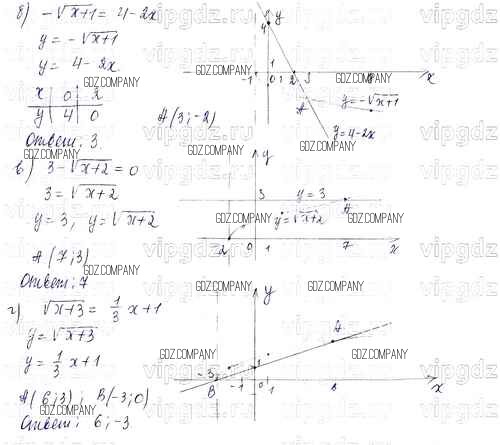 б) -√x+1 = 4-2x
y = -√x+1
y = 4-2x
x 0 2
y 4 0
A(3;-2)
Ответ: 3.
4 y
-1 0 1 2 3 8 x
A
y=-√x+1
y=4-2x
в) 3-√x+2 = 0
3 = √x+2
y = 3, y = √x+2
A(7;3)
Ответ: 7
y
3 y = 3
y = √x+2 A
-2 0 1 7 x
г) √x+3 = 1/3 x+1
y = √x+3
y = 1/3 x+1
A(6;3); B(-3;0)
Ответ: 6; -3
y
A
-3 1
B -1 0 1 6 x
GDZ.COMPANY
vipgdz.ru